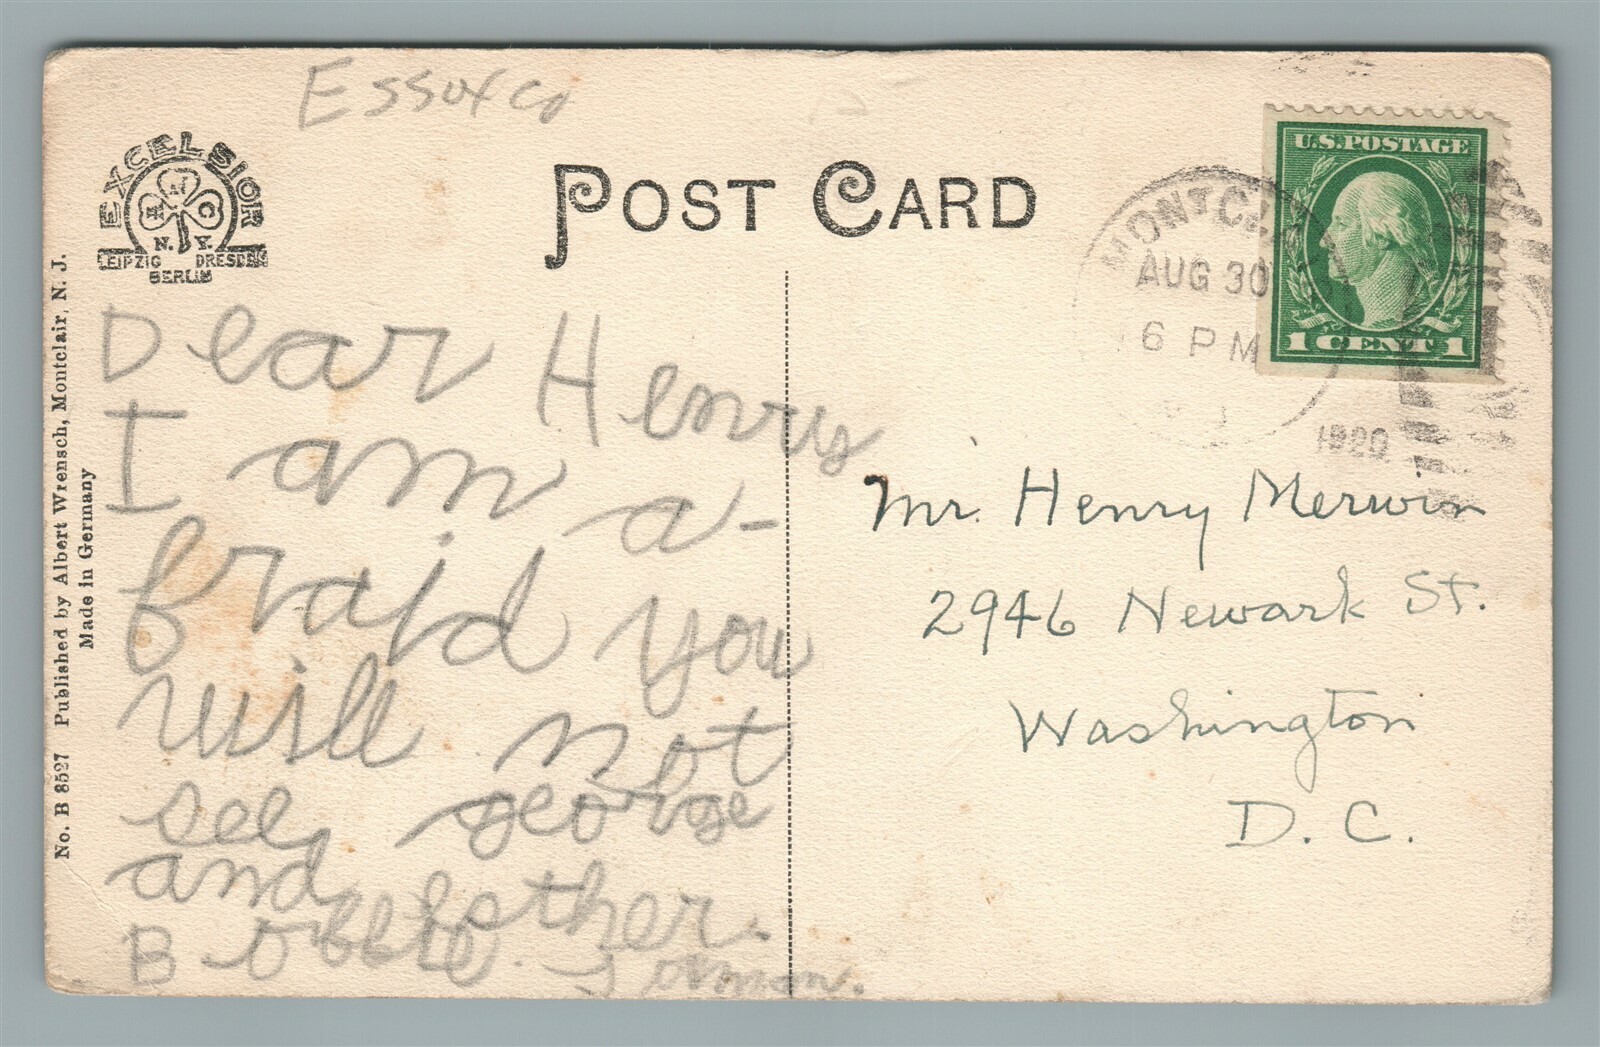 Essex Co
EXCELSIOR
N
A C
N. Y.
LEIPZIG DRESDEN
BERLIN
POST CARD
U.S. POSTAGE
1 CENT 1
MONTCLA
AUG 30
6 PM
1920
No. B 8527 Published by Albert Wrensch, Montclair, N. J.
Made in Germany
Dear Henry
I am a-
fraid you
will not
see george
and esther.
Bobbie
Mr. Henry Merwin
2946 Newark St.
Washington
D. C.